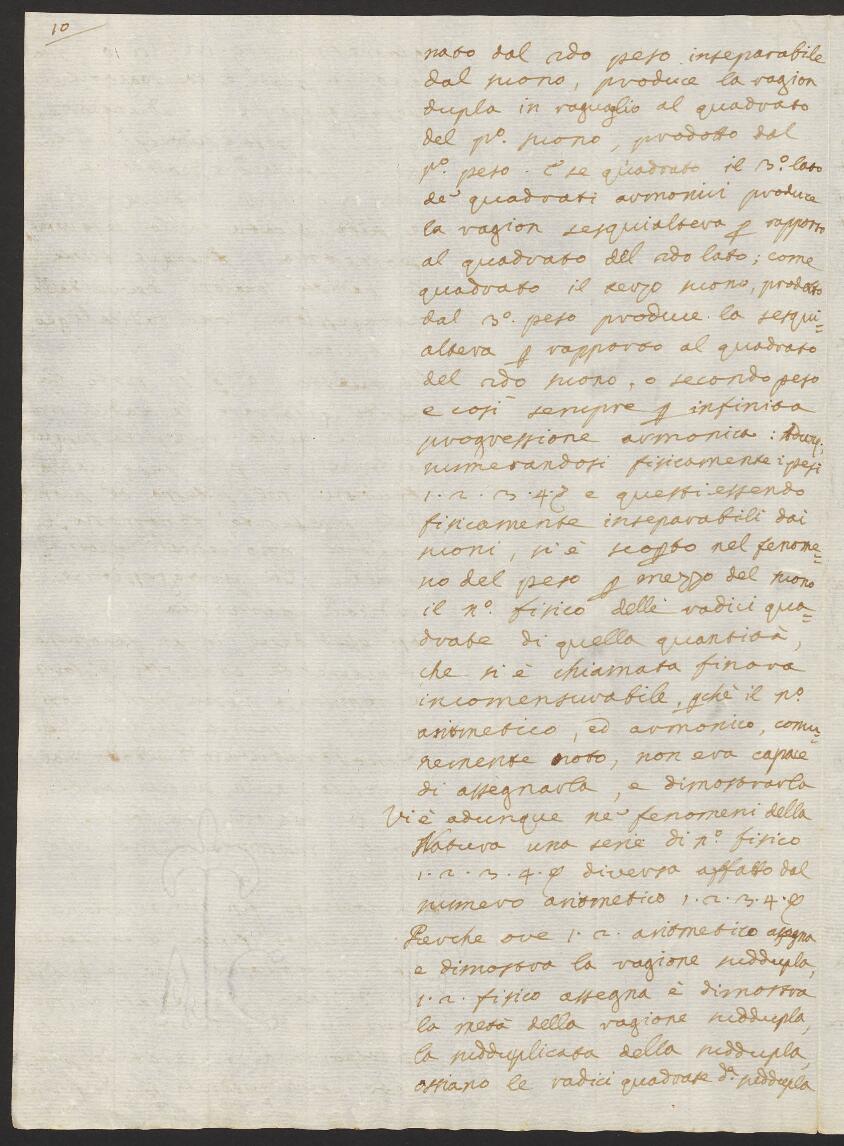 10
nato dal 2do peso inseparabile
dal suono, produce la ragion
dupla in raguaglio al quadrato
del pº. suono, prodotto dal
pº. peso. E se quadrato il 3º. lato
de' quadrati armonici produce
la ragion sesquialtera ꝑ rapporto
al quadrato del 2do lato; come
quadrato il terzo suono, prodotto
dal 3º. peso produce la sesqui=
altera ꝑ rapporto al quadrato
del 2do suono, o secondo peso
e così sempre ꝑ infinita
progressione armonica:
numerandosi fisicamente i pesi
1. 2. 3. 4. & e questi essendo
fisicamente inseparabili dai
suoni, si è scoꝑto nel fenome=
no del peso ꝑ mezzo del suono
il nº. fisico delle radici qua=
drate di quella quantità,
che si è chiamata finora
incomensurabile, ꝑchè il nº.
aritmetico, ed armonico, comu=
nemente noto, non era capace
di assegnarla, e dimostrarla
Vi è adunque ne' fenomeni della
Natura una serie di nº. fisico
1. 2. 3. 4. & diversa affatto dal
numero aritmetico 1. 2. 3. 4. &
Perche ove 1. 2. aritmetico assegna
e dimostra la ragione suddupla,
1. 2. fisico assegna è dimostra
la metà della ragione suddupla,
la sudduplicata della suddupla,
ossiano le radici quadrate d.ª suddupla